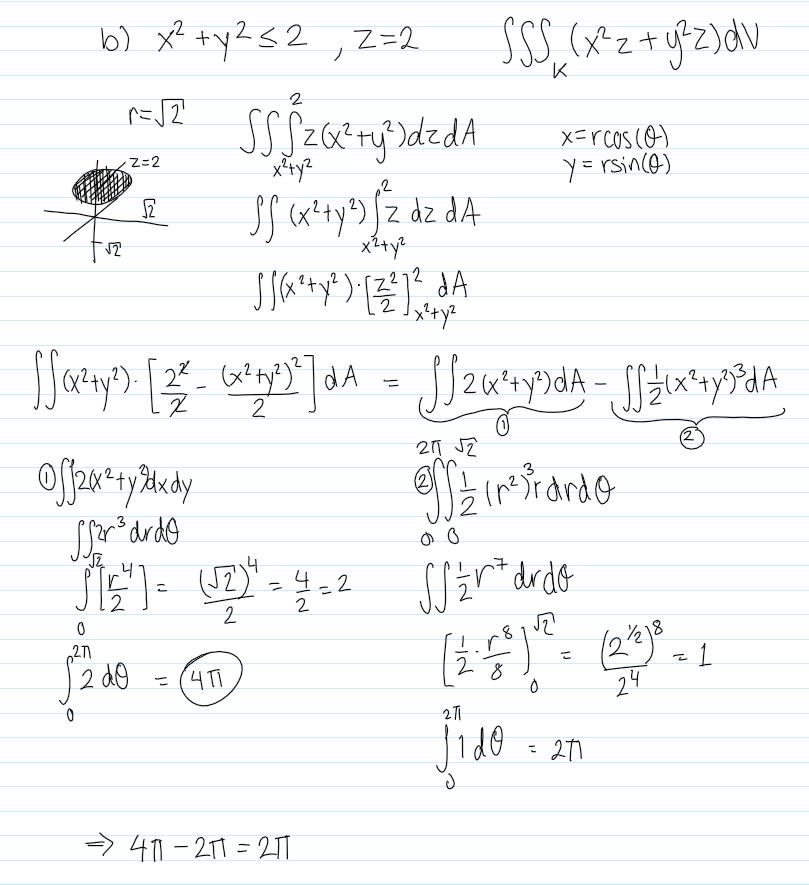 b) x² + y² ≤ 2 , z=2 ∫∫∫_K (x²z + y²z)dV
r=√2 ∫∫∫_{x²+y²}^{2} z(x²+y²)dzdA x=rcos(θ)
y=rsin(θ)
z=2
√2
√2
∫∫ (x²+y²) ∫_{x²+y²}^{2} z dz dA
∫∫(x²+y²)·[z²/2]_{x²+y²}^{2} dA
∫∫(x²+y²)·[2²/2 - (x²+y²)²/2] dA = ∫∫2(x²+y²)dA - ∫∫½(x²+y²)³dA
① ②
①∫∫2(x²+y²)dxdy
∫∫2r³drdθ
∫_{0}^{√2}[r⁴/2] = (√2)⁴/2 = 4/2 = 2
∫_{0}^{2π} 2 dθ = 4π
②∫_{0}^{2π}∫_{0}^{√2} ½(r²)³rdrdθ
∫∫½r⁷drdθ
[½·r⁸/8]_{0}^{√2} = (2^{1/2})⁸/2⁴ = 1
∫_{0}^{2π} 1dθ = 2π
⇒ 4π - 2π = 2π